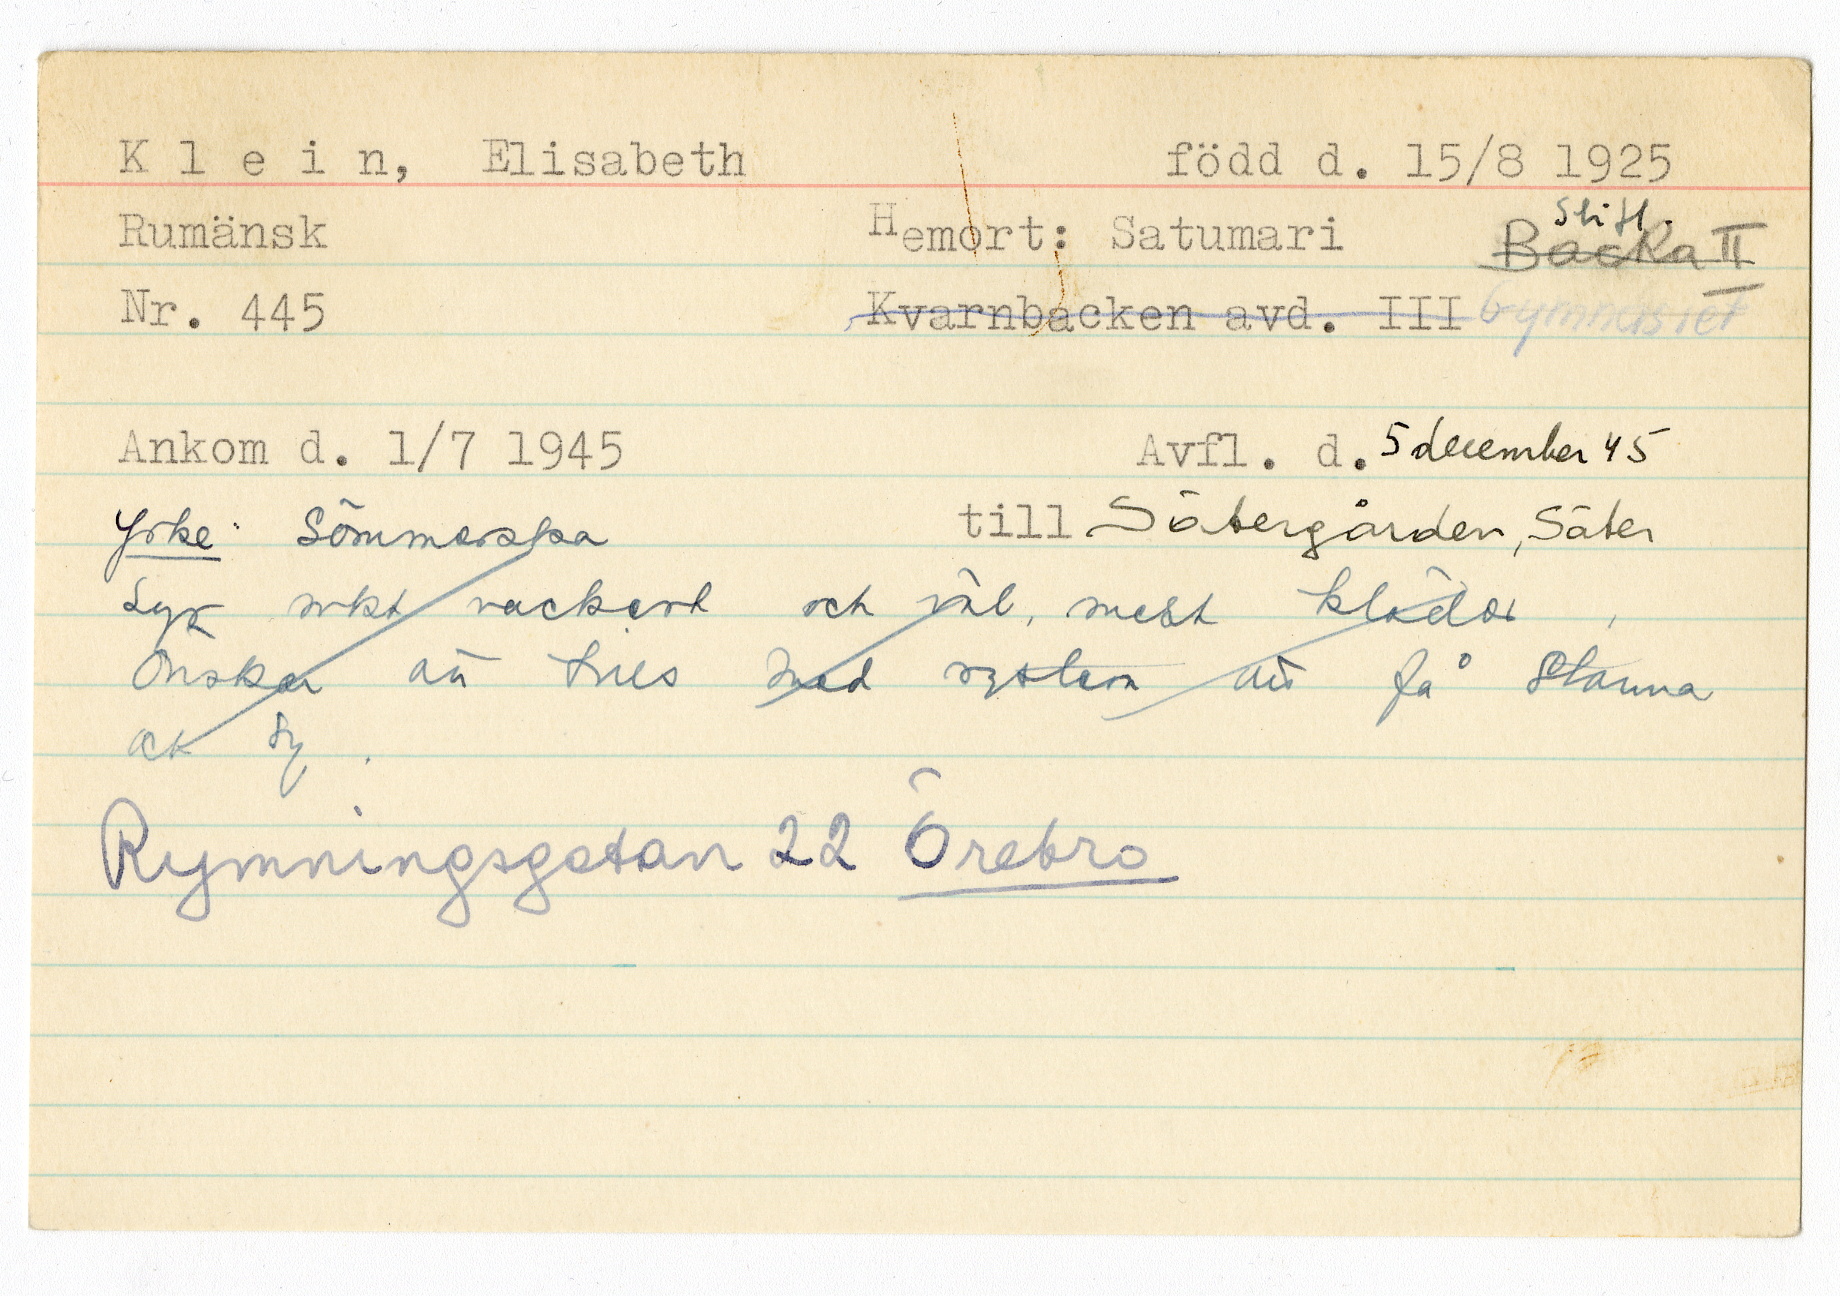 K l e i n, Elisabeth född d. 15/8 1925
Rumänsk Hemort: Satumari Backa II
Nr. 445 Kvarnbacken avd. III Gymnasiet
Ankom d. 1/7 1945 Avfl. d. 5 december 45
Yrke: Sömmerska till Sätergården, Säter
Syr mkt vackert och väl, mest kläder,
Önskar att med systern att få stanna
och sy.
Rymningsgatan 22 Örebro